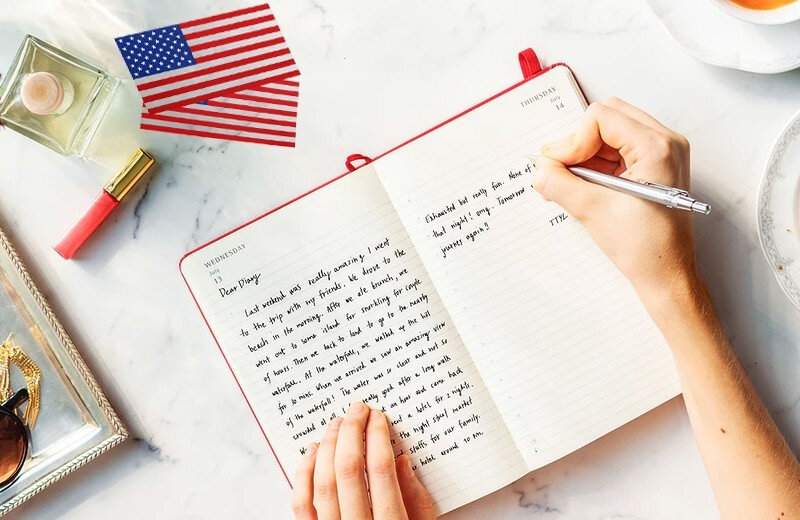 WEDNESDAY
July
13
Dear Diary
Last weekend was really amazing I went
to the trip with my friends. We drove to the
beach in the morning. After we ate brunch, we
went out to some island for snorkling for couple
of hours. Then we back to land to go to the nearby
waterfall. At the waterfall, we walked up the hill
for 30 mins. When we arrived we saw an amazing view
of the waterfall! The water was so clear and not so
crowded at all. really good after a long walk
an hour and came back
a hotel for 2 nights.
to the night street market
stuffs for our family.
hotel around 10 PM.
THURSDAY
July
14
Exhausted but really fun. None of
that night! omg. Tomorrow
journey again!!
TTYL